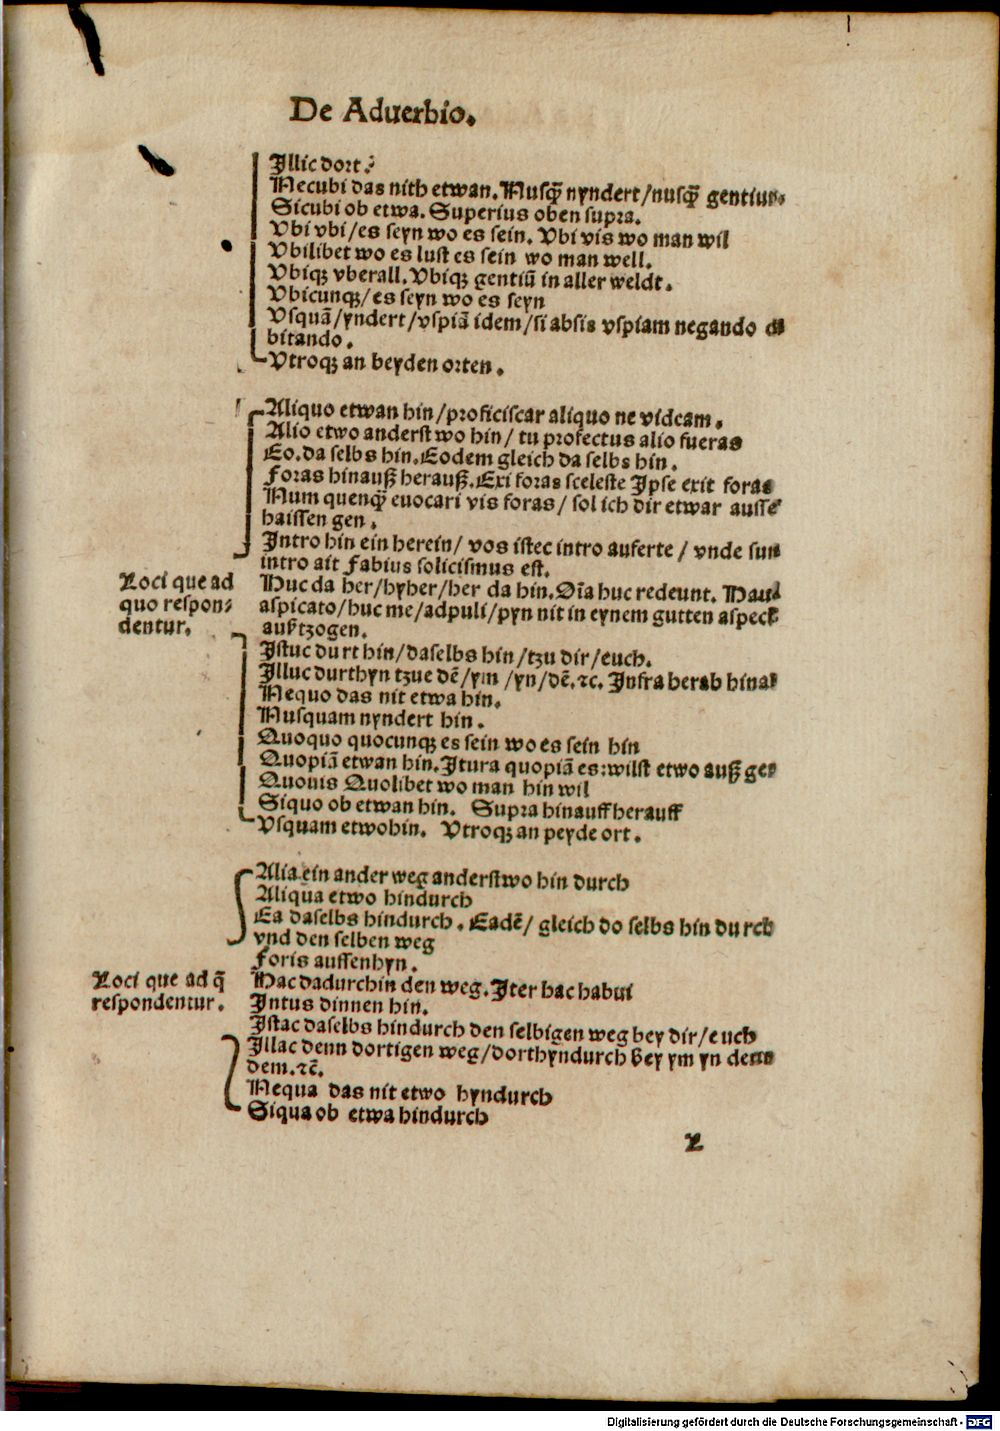 De Aduerbio.
Illic dort.
Necubi das nith etwan. Nusq̃ nyndert/nusq̃ gentium
Sicubi ob etwa. Superius oben supra.
Vbi vbi/es seyn wo es sein. Vbi vis wo man wil
Vbilibet wo es lust es sein wo man well.
Vbiqꝫ vberall. Vbiqꝫ gentiũ in aller weldt.
Vbicunqꝫ/es seyn wo es seyn
Vsquã/yndert/vspiã idem/si absis vspiam negando
bitando.
Vtroqꝫ an beyden orten.
Aliquo etwan hin/proficiscar aliquo ne videam.
Alio etwo anderst wo hin/ tu profectus alio fueras
Eo. da selbs hin. Eodem gleich da selbs hin.
Foras hinauß herauß. Exi foras sceleste Ipse exit foras
Num quenq̃ euocari vis foras/ sol ich dir etwar ausse
haissen gen.
Intro hin ein herein/ vos istec intro auferte/ vnde sum
intro ait Fabius solicismus est.
Loci que ad
quo respon-
dentur.
Huc da her/hyher/her da hin. Oĩa huc redeunt. Haud
aspicato/huc me/adpuli/pyn nit in eynem gutten aspect
außtzogen.
Istuc durt hin/daselbs hin/tzu dir/euch.
Illuc durthyn tzue dẽ/ym/yn/dẽ.ꝛc. Infra herab hinab
Nequo das nit etwa hin.
Nusquam nyndert hin.
Quoquo quocunqꝫ es sein wo es sein hin
Quopiã etwan hin. Itura quopiã es: wilst etwo auß gen
Quouis Quolibet wo man hin wil
Siquo ob etwan hin. Supra hinauff herauff
Vsquam etwohin. Vtroqꝫ an peyde ort.
Alia ein ander weg anderstwo hin durch
Aliqua etwo hindurch
Ea daselbs hindurch. Eadẽ/ gleich do selbs hin durch
vnd den selben weg
Foris aussenhyn.
Loci que ad q̃
respondentur.
Hac dadurchin den weg. Iter hac habui
Intus dinnen hin.
Istac daselbs hindurch den selbigen weg bey dir/euch
Illac denn dortigen weg/dorthyndurch bey ym yn
dem.ꝛc̃.
Nequa das nit etwo hyndurch
Siqua ob etwa hindurch
L
Digitalisierung gefördert durch die Deutsche Forschungsgemeinschaft - DFG